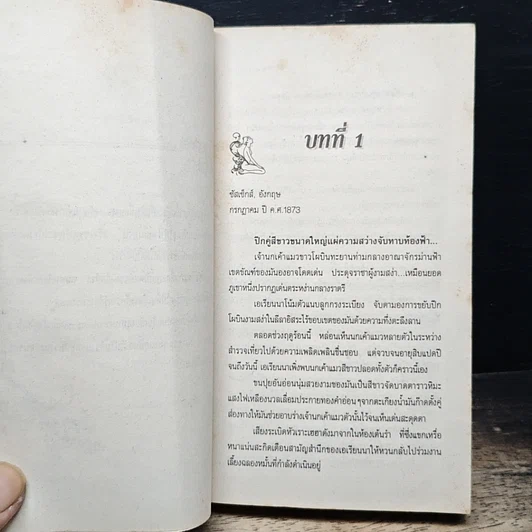 บทที่ 1
ซัสเซ็กส์, อังกฤษ
กรกฎาคม ปี ค.ศ.1873
ปีกคู่สีขาวขนาดใหญ่แผ่ความสว่างจับทาบท้องฟ้า...
เจ้านกเค้าแมวขาวโผบินทะยานท่ามกลางอาณาจักรม่านฟ้า
เขตขัณฑ์ของมันองอาจโดดเด่น ประดุจราชาผู้งามสง่า...เหมือนยอด
ภูเขาหนึ่งปรากฏเด่นตระหง่านกลางราตรี
เอเรียนนาโน้มตัวแนบลูกกรงระเบียง จับตามองการขยับปีก
โผบินงามสง่าในลีลาอิสระไร้ขอบเขตของมันด้วยความทึ่งตะลึงลาน
ตลอดช่วงฤดูร้อนนี้ หล่อนเห็นนกเค้าแมวหลายตัวในระหว่าง
สำรวจเที่ยวไปด้วยความเพลิดเพลินชื่นชอบ แต่จวบจนอายุสิบแปดปี
จนถึงวันนี้ เอเรียนนาเพิ่งพบนกเค้าแมวสีขาวปลอดทั้งตัวก็คราวนี้เอง
ขนปุยอันอ่อนนุ่มสวยงามของมันเป็นสีขาวจัดบาดตาราวหิมะ
แสงไฟเหลืองนวลเลื่อมประกายทองคำอ่อนๆจากตะเกียงน้ำมันก๊าดตั้งคู่
ส่องทางให้มันช่วยอาบร่างเจ้านกเค้าแมวตัวนั้นไว้จนเห็นเด่นสะดุดตา
เสียงระเบิดหัวเราะเฮฮาดังมาจากในห้องเต้นรำ ที่ซึ่งแขกเหรื่อ
หนาแน่นสะกิดเตือนสามัญสำนึกของเอเรียนนาให้หวนกลับไปร่วมงาน
เลี้ยงฉลองหมั้นที่กำลังดำเนินอยู่